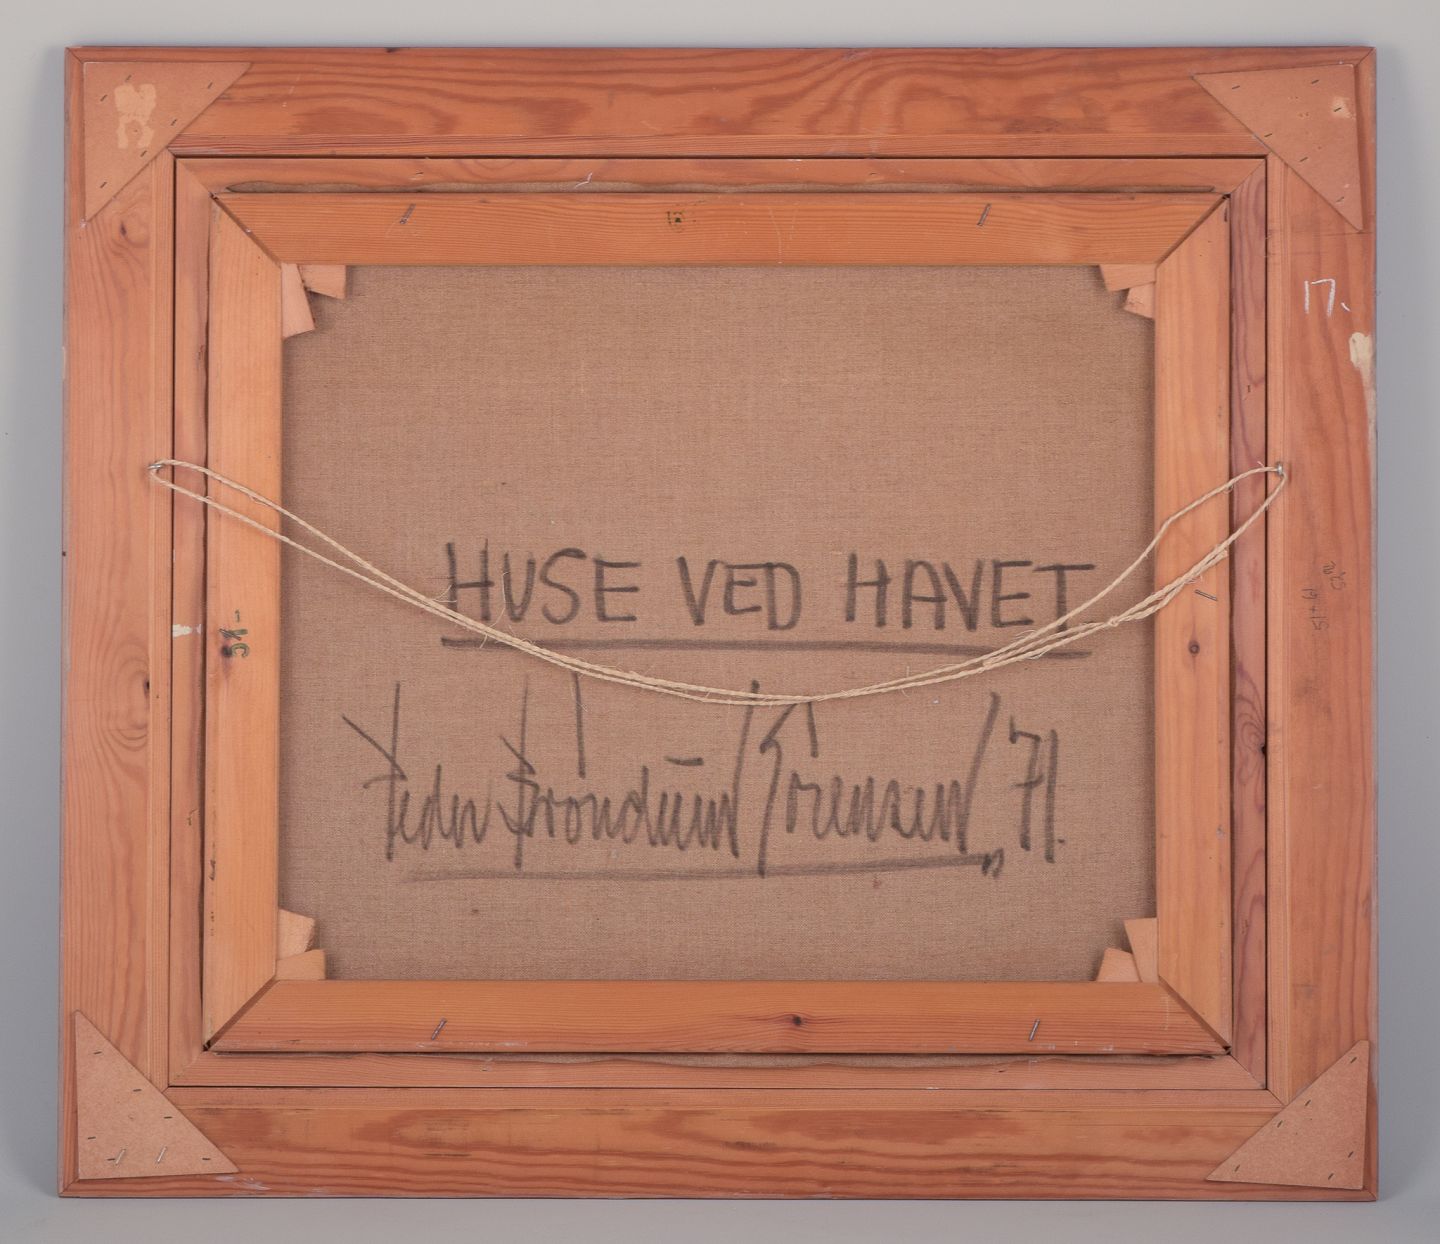 HUSE VED HAVET
Peder Bröndum Sörensen 71.
51-
17.